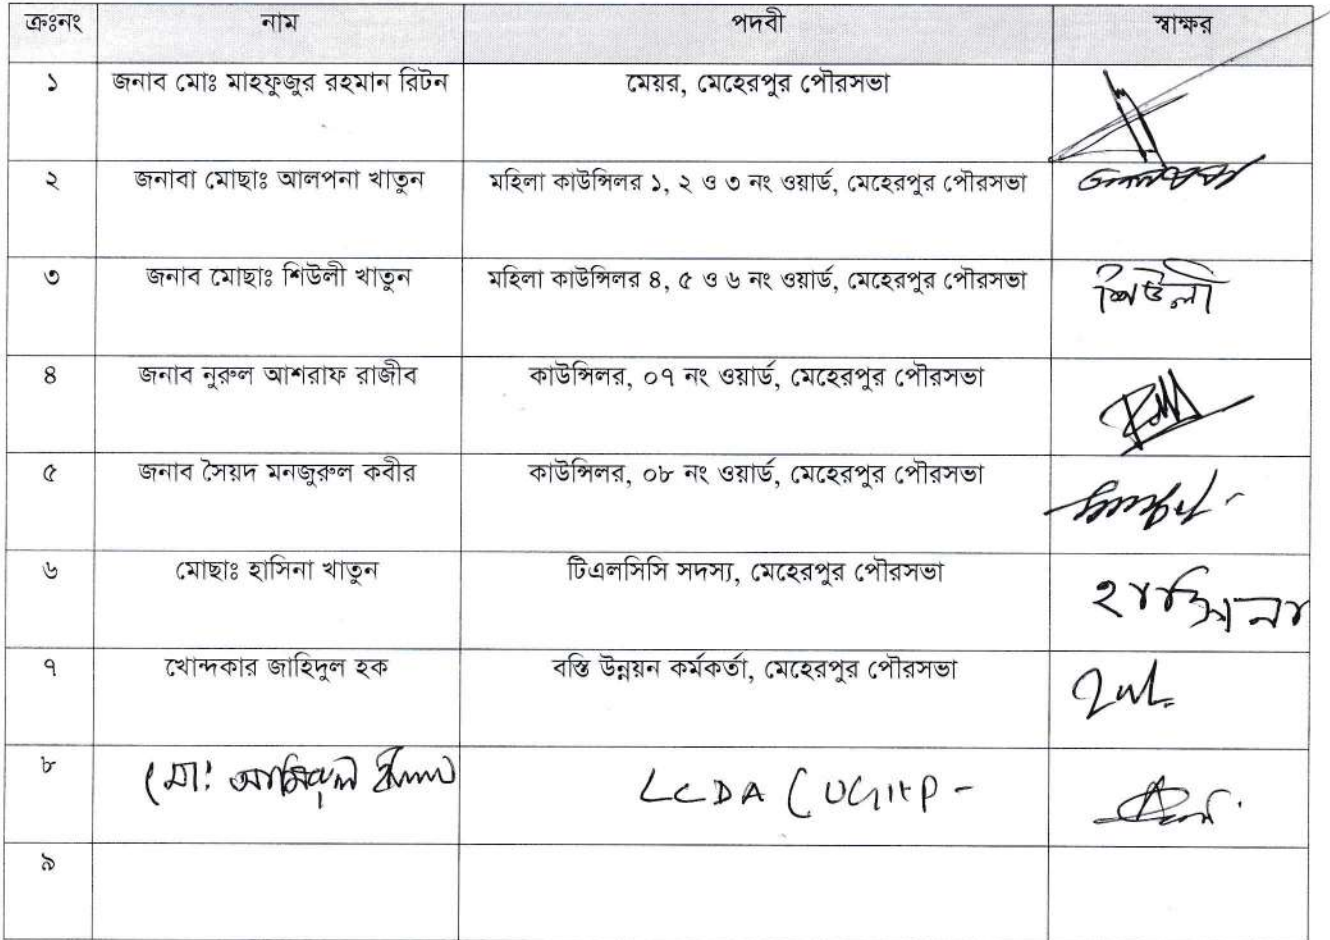 ক্রঃনং নাম পদবী স্বাক্ষর
১ জনাব মোঃ মাহফুজুর রহমান রিটন মেয়র, মেহেরপুর পৌরসভা
২ জনাবা মোছাঃ আলপনা খাতুন মহিলা কাউন্সিলর ১, ২ ও ৩ নং ওয়ার্ড, মেহেরপুর পৌরসভা
৩ জনাব মোছাঃ শিউলী খাতুন মহিলা কাউন্সিলর ৪, ৫ ও ৬ নং ওয়ার্ড, মেহেরপুর পৌরসভা শিউলী
৪ জনাব নুরুল আশরাফ রাজীব কাউন্সিলর, ০৭ নং ওয়ার্ড, মেহেরপুর পৌরসভা
৫ জনাব সৈয়দ মনজুরুল কবীর কাউন্সিলর, ০৮ নং ওয়ার্ড, মেহেরপুর পৌরসভা
৬ মোছাঃ হাসিনা খাতুন টিএলসিসি সদস্য, মেহেরপুর পৌরসভা হাসিনা
৭ খোন্দকার জাহিদুল হক বস্তি উন্নয়ন কর্মকর্তা, মেহেরপুর পৌরসভা
৮ মো: LCDA
৯